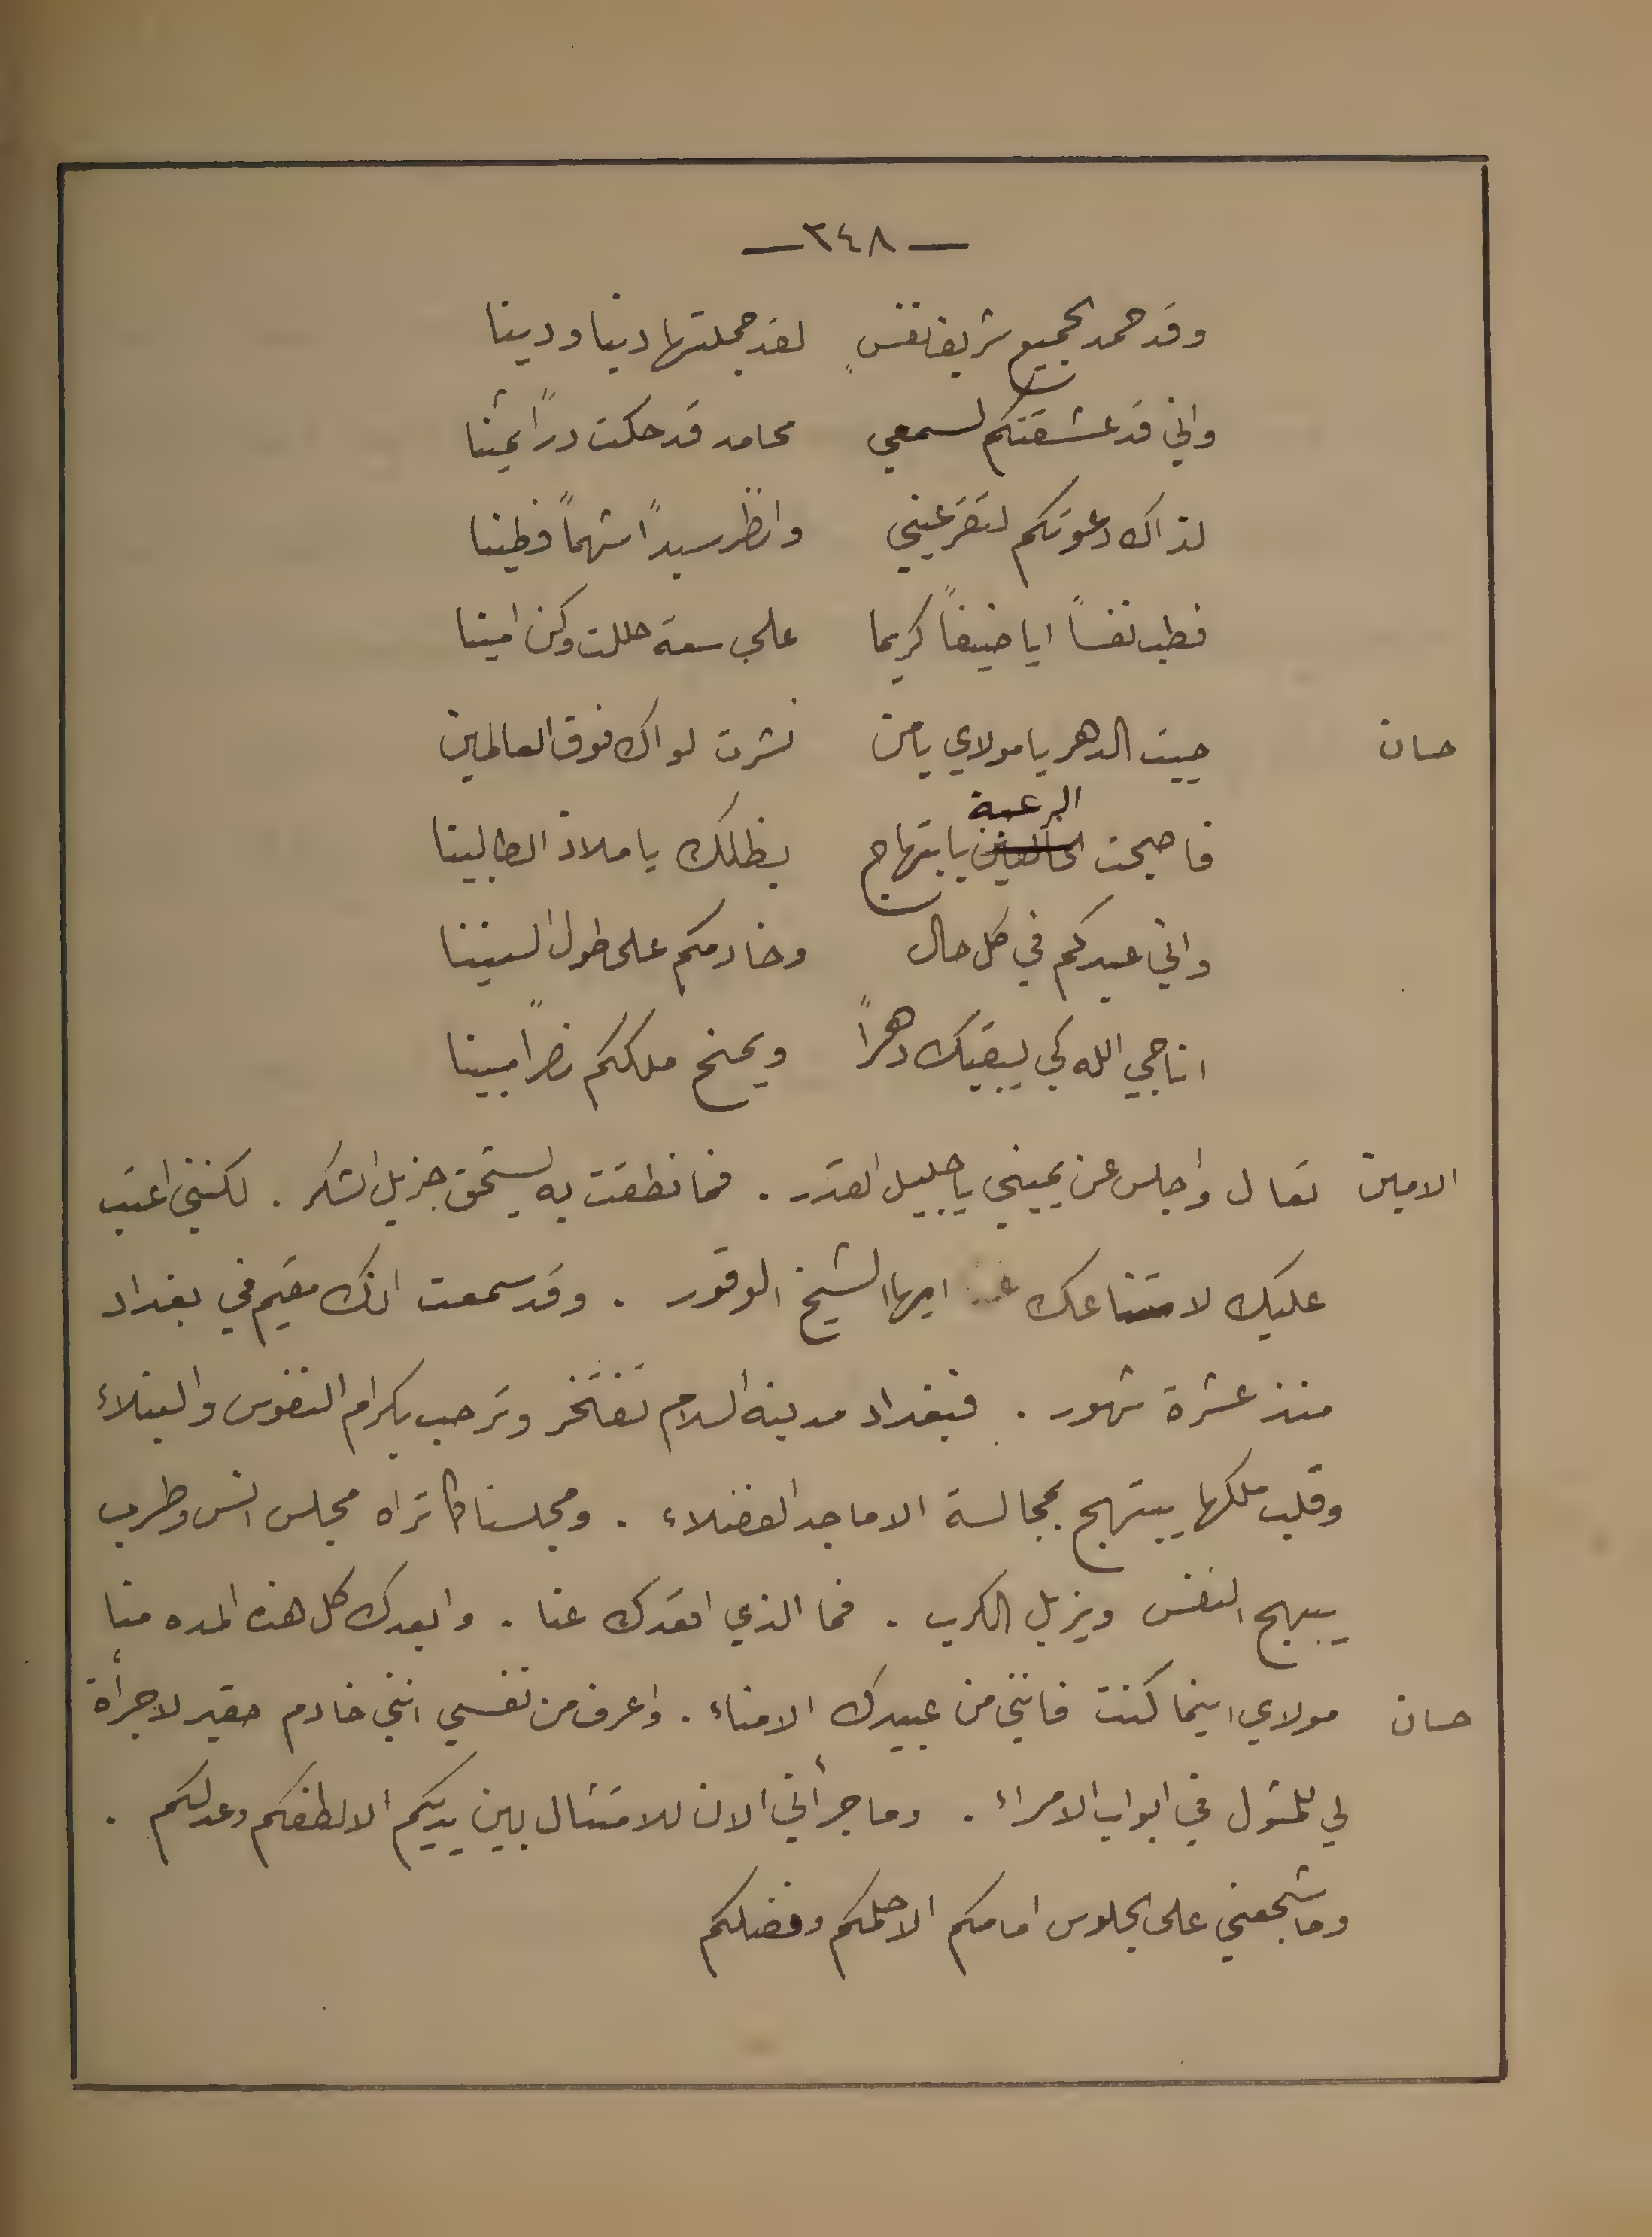 — ٢٤٨ —
وقد حمد الجميع شريف نفسٍ لقد جملتها دينا ودينا
واني قد عشقتكم لسمعي محامد قد حكت دراً ثمينا
لذاك دعوتكم لتقر عيني وانظر سيداً شهماً فطينا
فطب نفساً ايا ضيفاً كريما على سعة حللت وكن امينا
حسان حييت الدهر يا مولاي يا من نشرت لواك فوق العالمين
الرعية
فاصبحت بابتهاج بظلك يا ملاذ الطالبينا
واني عبدكم في كل حال وخادمكم على طول السنينا
اناجي الله كي يبقيك دهراً ويمنح ملككم نصراً مبينا
الامين تعال واجلس عن يميني يا جليل القدر . فما نطقت به يستحق جزيل الشكر . لكنني اعتب
عليك لامتناعك ايها الشيخ الوقور . وقد سمعت انك مقيم في بغداد
منذ عشرة شهور . فبغداد مدينة السلام تفتخر وترحب بكرام النفوس والنبلاء
وقلب ملكها يبتهج بمجالسة الاماجد الفضلاء . ومجلسنا كما تراه مجلس انس وطرب
يبهج النفس ويزيل الكرب . فما الذي اقعدك عنا . وابعدك كل هذه المده منا
حسان مولاي اينما كنت فانني من عبيدك الامناء . واعرف من نفسي انني خادم حقير لا جرأة
لي للمثول في ابواب الامراء . وما جرأني الان للامتثال بين يديكم الا لطفكم وعدلكم .
وما شجعني على الجلوس امامكم الا حلمكم وفضلكم